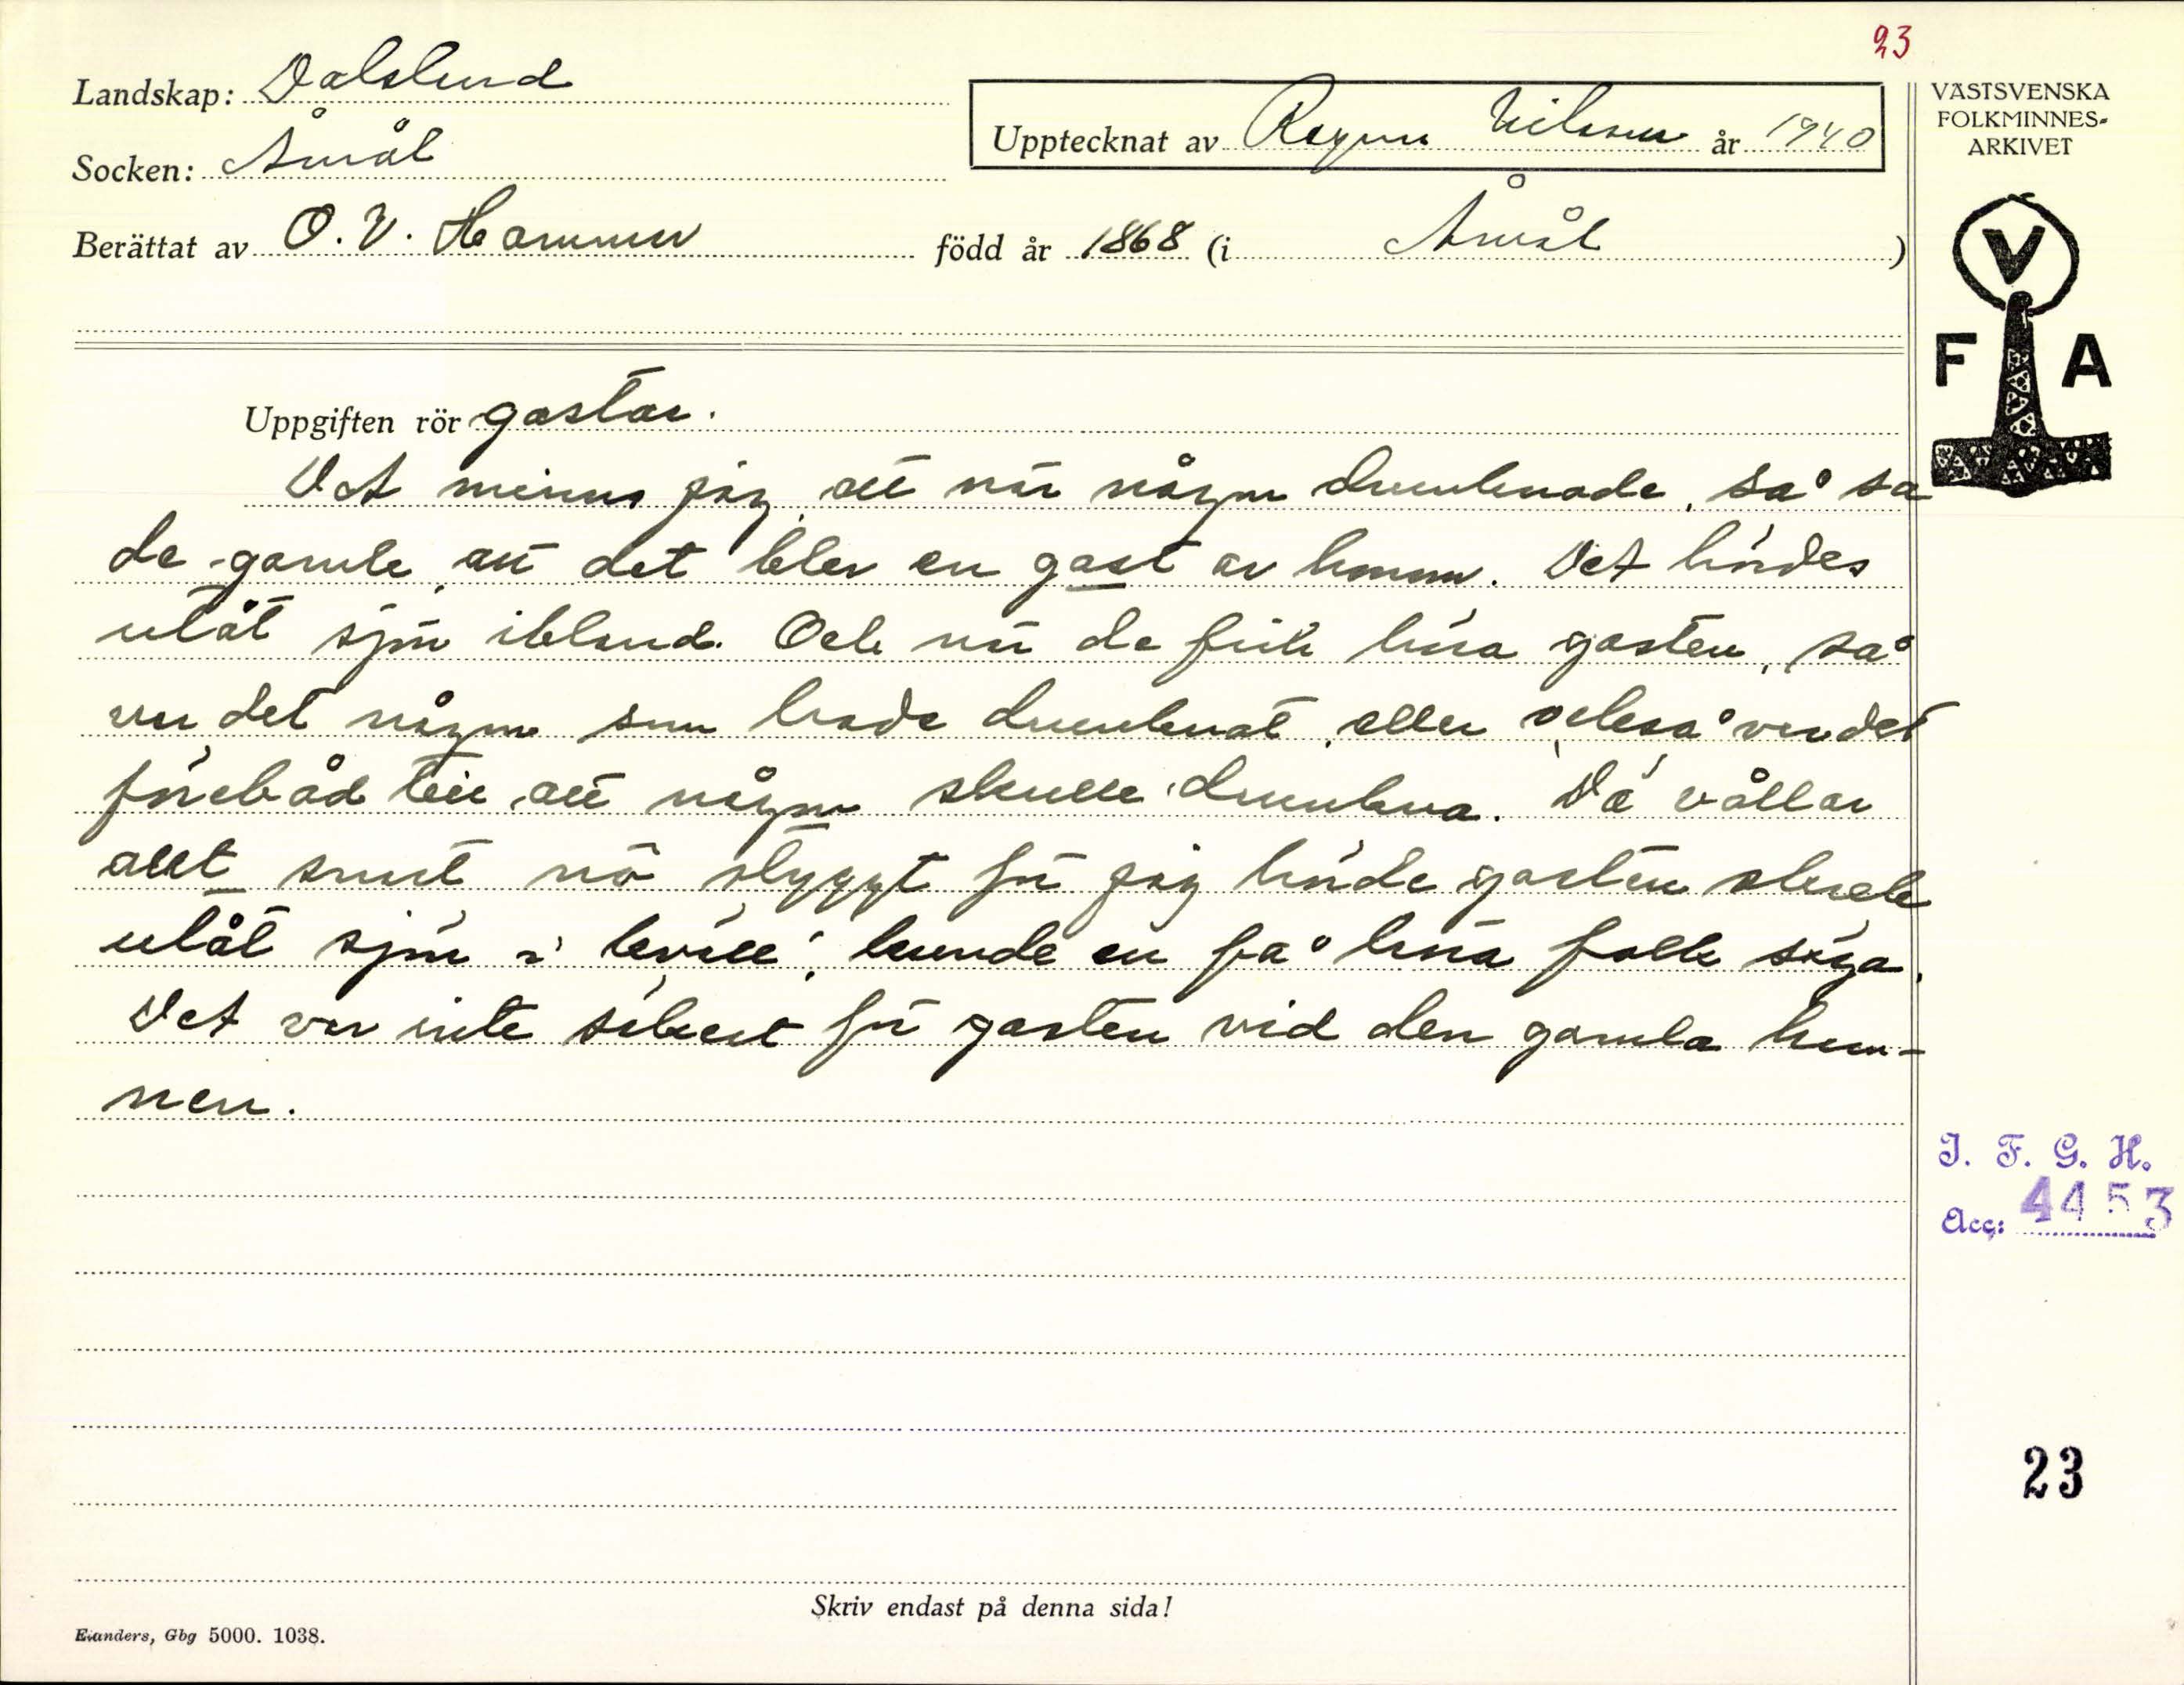 23
Landskap: Dalsland
Upptecknat av Ragnar Nilsson år 1940
Socken: Åmål
Berättat av O.V. Hammar född år 1868 (i Åmål)
VÄSTSVENSKA
FOLKMINNES-
ARKIVET
V
F A
Uppgiften rör gastar.
Det minns jag, att när någon drunknade, så sa
de gamle, att det blev en gast av honom. Det hördes
utåt sjön ibland. Och när de fick höra gasten, så
var det någon som hade drunknat, eller också var det
förebåd till, att någon skulle drunkna. Dä vållar
allt snart nô styggt för jag hörde gasten skrek
utåt sjön i kväll, kunde en få höra folk säga.
Det var inte säkert för gasten vid den gamla ham-
nen.
I. F. G. H.
Acc: 4453
23
Skriv endast på denna sida!
Elanders, Gbg 5000. 1038.